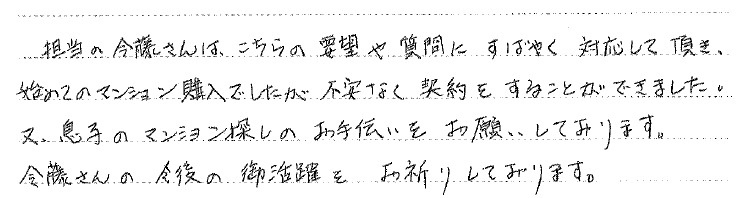 担当の今藤さんは、こちらの要望や質問に すばやく 対応して頂き、
始めてのマンション購入でしたが 不安なく 契約をすることができました。
又、息子の マンション探しの お手伝いを お願いしております。
今藤さんの 今後の 御活躍を お祈りしております。